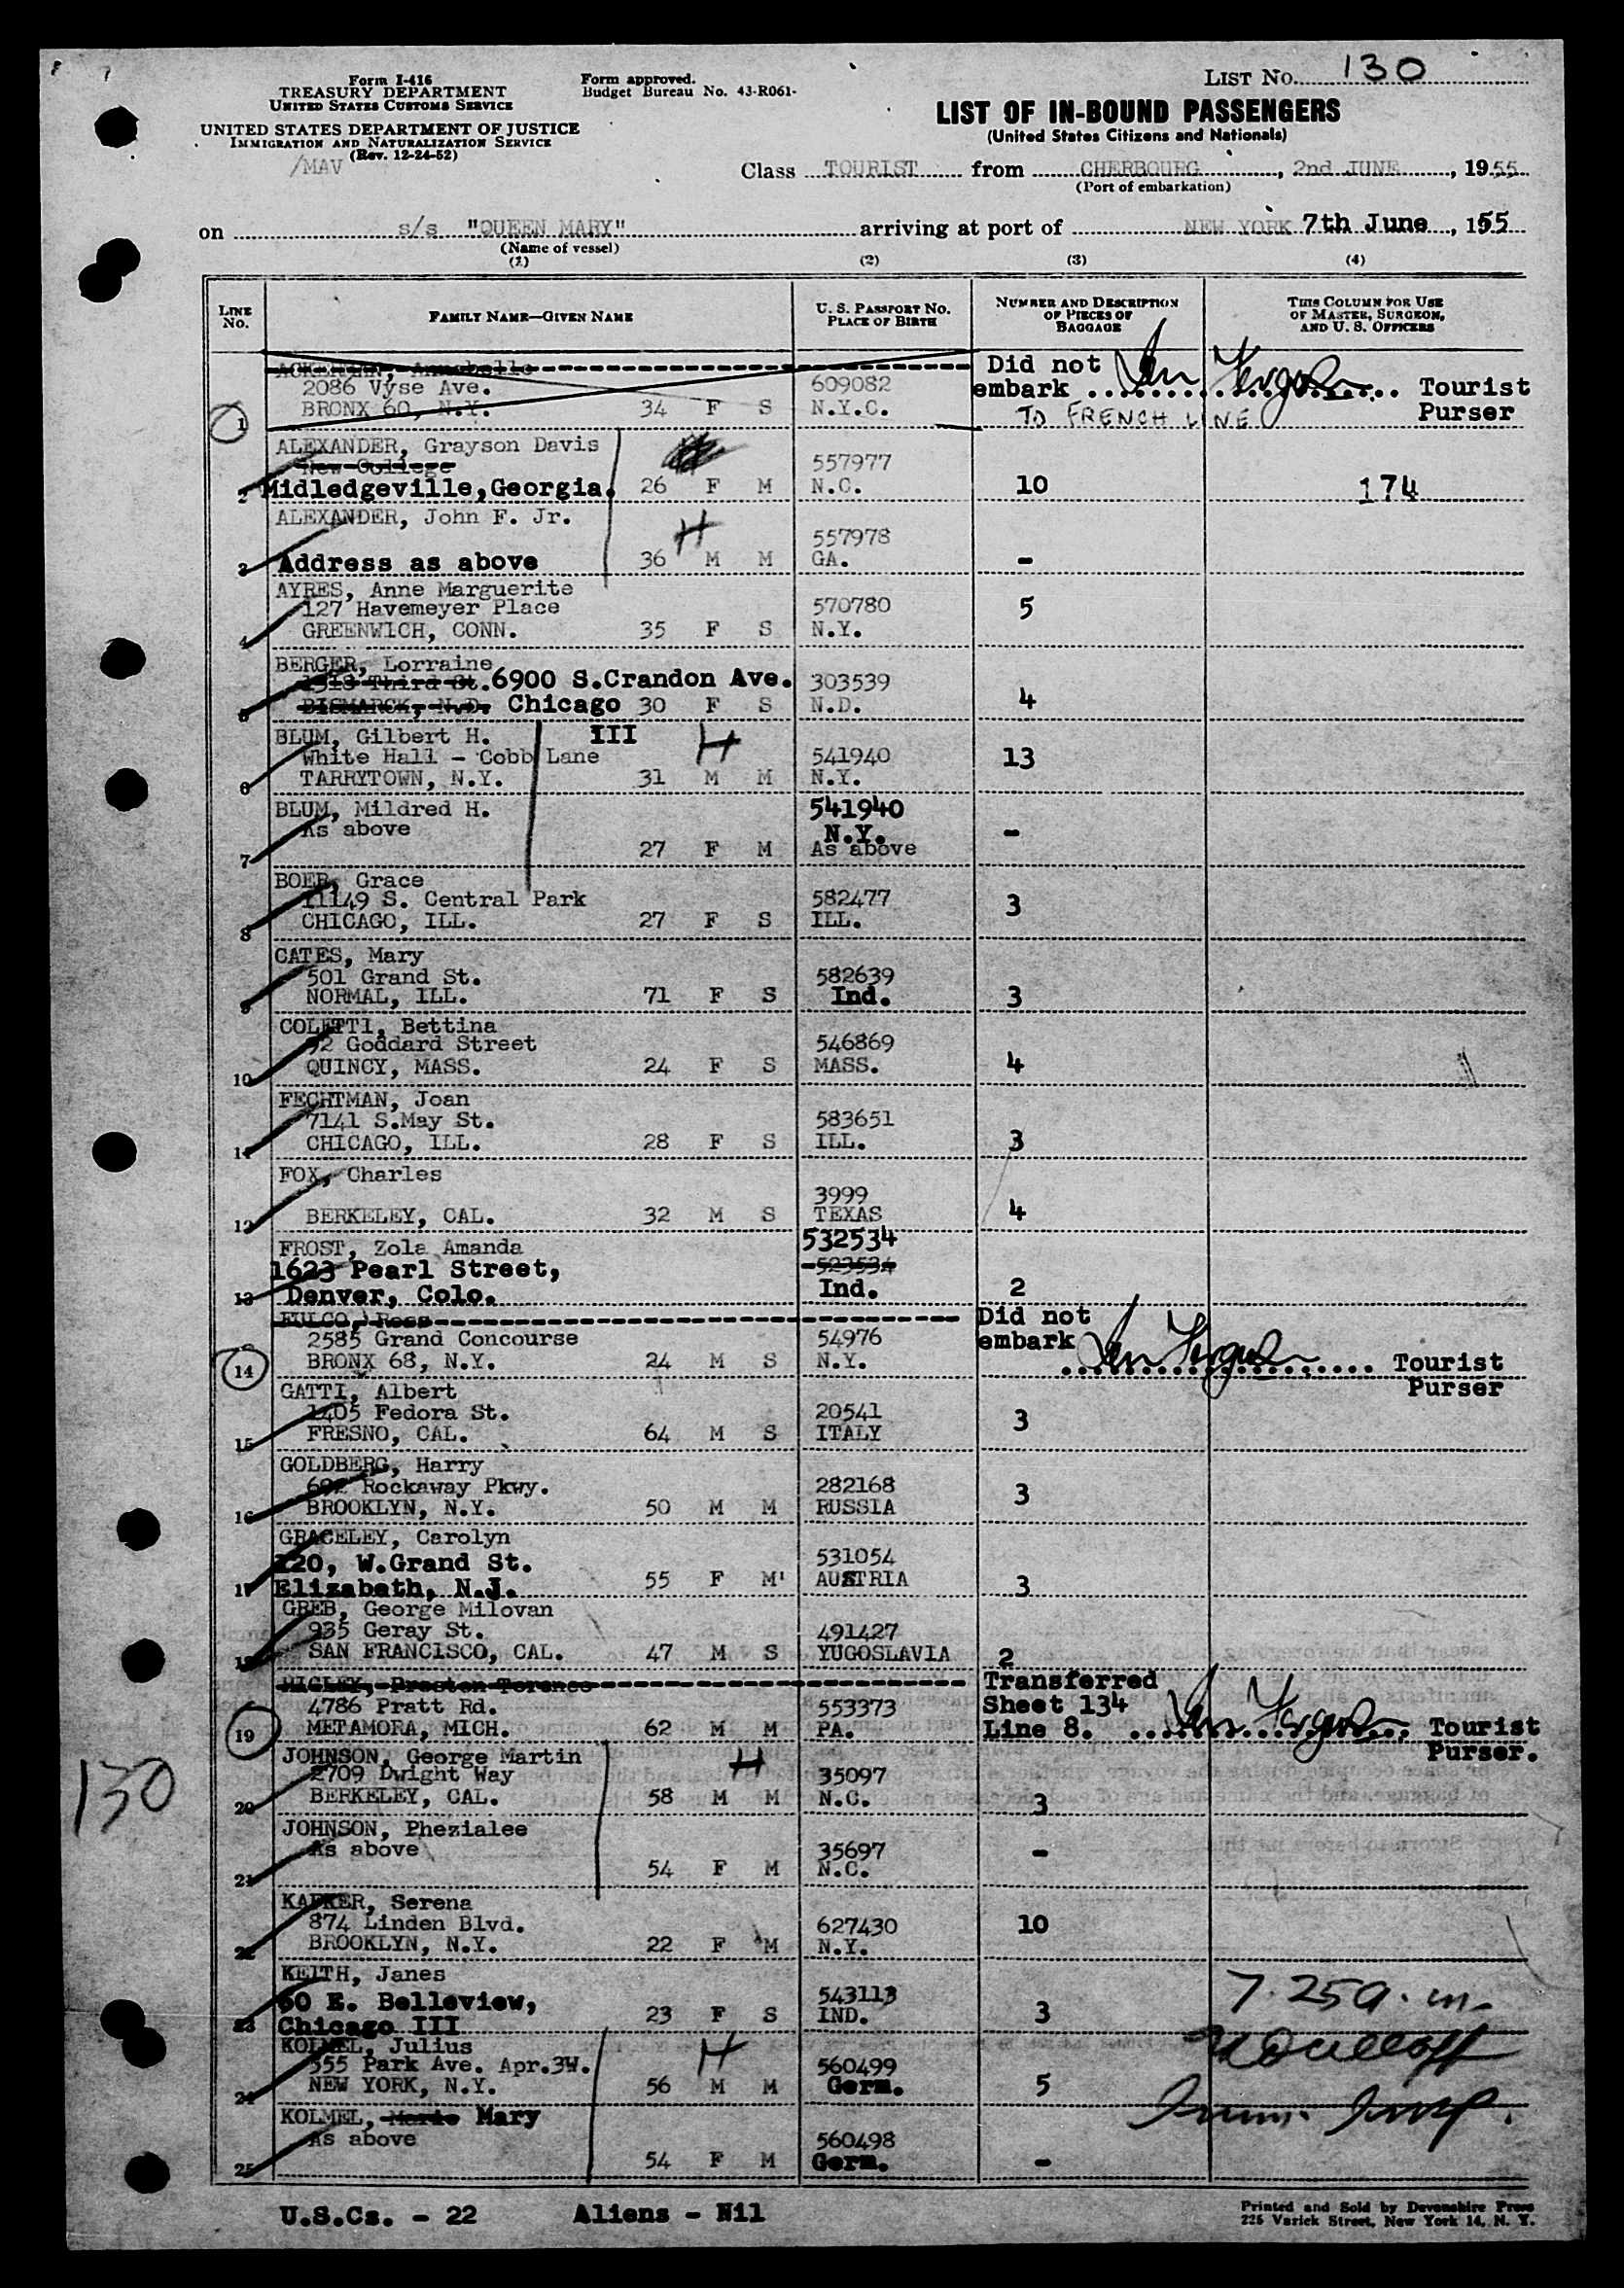 LIST NO. 130
Form I-416
TREASURY DEPARTMENT
UNITED STATES CUSTOMS SERVICE
Form approved.
Budget Bureau No. 43-R061-
UNITED STATES DEPARTMENT OF JUSTICE
IMMIGRATION AND NATURALIZATION SERVICE
(Rev. 12-24-52)
/MAV
LIST OF IN-BOUND PASSENGERS
(United States Citizens and Nationals)
Class TOURIST from CHERBOURG, 2nd JUNE, 1955
(Port of embarkation)
on s/s "QUEEN MARY" arriving at port of NEW YORK 7th June, 1955
(Name of vessel)
(1) (2) (3) (4)
LINE No. FAMILY NAME—GIVEN NAME U. S. PASSPORT NO. PLACE OF BIRTH NUMBER AND DESCRIPTION OF PIECES OF BAGGAGE THIS COLUMN FOR USE OF MASTER, SURGEON, AND U. S. OFFICERS
ACKERMAN, Annabelle Did not
2086 Vyse Ave. 609082 embark Tourist
1 BRONX 60, N.Y. 34 F S N.Y.C. TO FRENCH LINE Purser
ALEXANDER, Grayson Davis
New College 557977
2 Midledgeville, Georgia. 26 F M N.C. 10 174
ALEXANDER, John F. Jr. H
557978
3 Address as above 36 M M GA. -
AYRES, Anne Marguerite
127 Havemeyer Place 570780 5
4 GREENWICH, CONN. 35 F S N.Y.
BERGER, Lorraine
1318 Third St. 6900 S.Crandon Ave. 303539
5 BISMARCK, N.D. Chicago 30 F S N.D. 4
BLUM, Gilbert H. III H
White Hall - Cobb Lane 541940 13
6 TARRYTOWN, N.Y. 31 M M N.Y.
BLUM, Mildred H. 541940
As above N.Y. -
7 27 F M As above
BOER, Grace
11149 S. Central Park 582477 3
8 CHICAGO, ILL. 27 F S ILL.
CATES, Mary
501 Grand St. 582639
9 NORMAL, ILL. 71 F S Ind. 3
COLETTI, Bettina
92 Goddard Street 546869
10 QUINCY, MASS. 24 F S MASS. 4
FECHTMAN, Joan
7141 S.May St. 583651
11 CHICAGO, ILL. 28 F S ILL. 3
FOX, Charles
3999
12 BERKELEY, CAL. 32 M S TEXAS 4
FROST, Zola Amanda 532534
1623 Pearl Street, 523534
13 Denver, Colo. Ind. 2
FULCO, Ross Did not
2585 Grand Concourse 54976 embark
14 BRONX 68, N.Y. 24 M S N.Y. Tourist
Purser
GATTI, Albert
1405 Fedora St. 20541 3
15 FRESNO, CAL. 64 M S ITALY
GOLDBERG, Harry
692 Rockaway Pkwy. 282168 3
16 BROOKLYN, N.Y. 50 M M RUSSIA
GRACELEY, Carolyn
120, W.Grand St. 531054
17 Elizabeth, N.J. 55 F M AUSTRIA 3
GREB, George Milovan
935 Geray St. 491427
18 SAN FRANCISCO, CAL. 47 M S YUGOSLAVIA 2
HIGLEY, Preston Torence Transferred
4786 Pratt Rd. 553373 Sheet 134
19 METAMORA, MICH. 62 M M PA. Line 8. Tourist
Purser.
JOHNSON, George Martin H
2709 Dwight Way 35097
20 BERKELEY, CAL. 58 M M N.C. 3
JOHNSON, Phezialee
As above 35697 -
21 54 F M N.C.
130
KAPKER, Serena
874 Linden Blvd. 627430 10
22 BROOKLYN, N.Y. 22 F M N.Y.
KEITH, Janes
60 E. Belleview, 543113 7.25 a.m.
23 Chicago III 23 F S IND. 3
KOLMEL, Julius H
555 Park Ave. Apr.3W. 560499
24 NEW YORK, N.Y. 56 M M Germ. 5
KOLMEL, Marie Mary Imm. Insp.
As above 560498
25 54 F M Germ. -
U.S.Cs. - 22 Aliens - Nil
Printed and Sold by Devonshire Press
225 Varick Street, New York 14, N. Y.